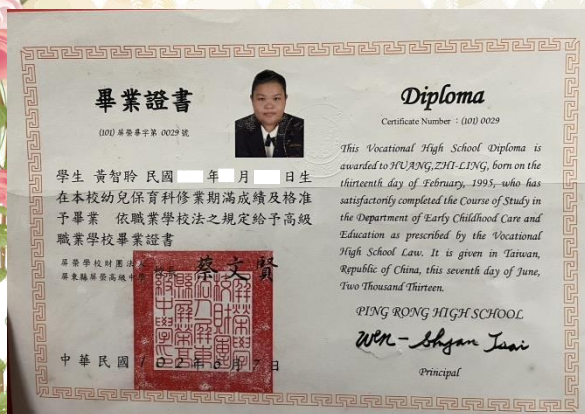 畢業證書
(101) 屏榮畢字第 0029 號
學生 黃智聆 民國 年 月 日生
在本校幼兒保育科修業期滿成績及格准
予畢業 依職業學校法之規定給予高級
職業學校畢業證書
屏榮學校財團法人
屏東縣屏榮高級中學
蔡文賢
中華民國102年6月7日
Diploma
Certificate Number : (101) 0029
This Vocational High School Diploma is
awarded to HUANG,ZHI-LING, born on the
thirteenth day of February, 1995, who has
satisfactorily completed the Course of Study in
the Department of Early Childhood Care and
Education as prescribed by the Vocational
High School Law. It is given in Taiwan,
Republic of China, this seventh day of June,
Two Thousand Thirteen.
PING RONG HIGH SCHOOL
Wen-Shyan Tsai
Principal